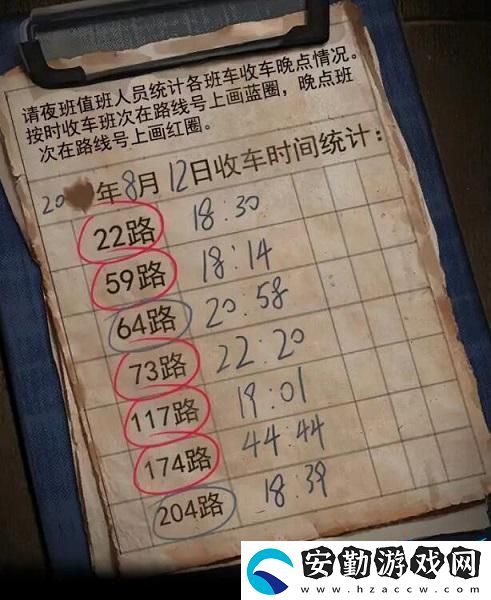 请夜班值班人员统计各班车收车晚点情况。
按时收车班次在路线号上画蓝圈，晚点班
次在路线号上画红圈。
20 年8月12日收车时间统计：
22路 18:30
59路 18:14
64路 20:58
73路 22:20
117路 19:01
174路 44:44
204路 18:39
安勤游戏网
www.hzaccw.com